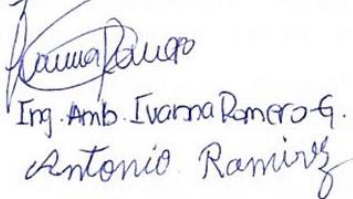 Ivanna Romero
Ing. Amb. Ivanna Romero G.
Antonio Ramirez